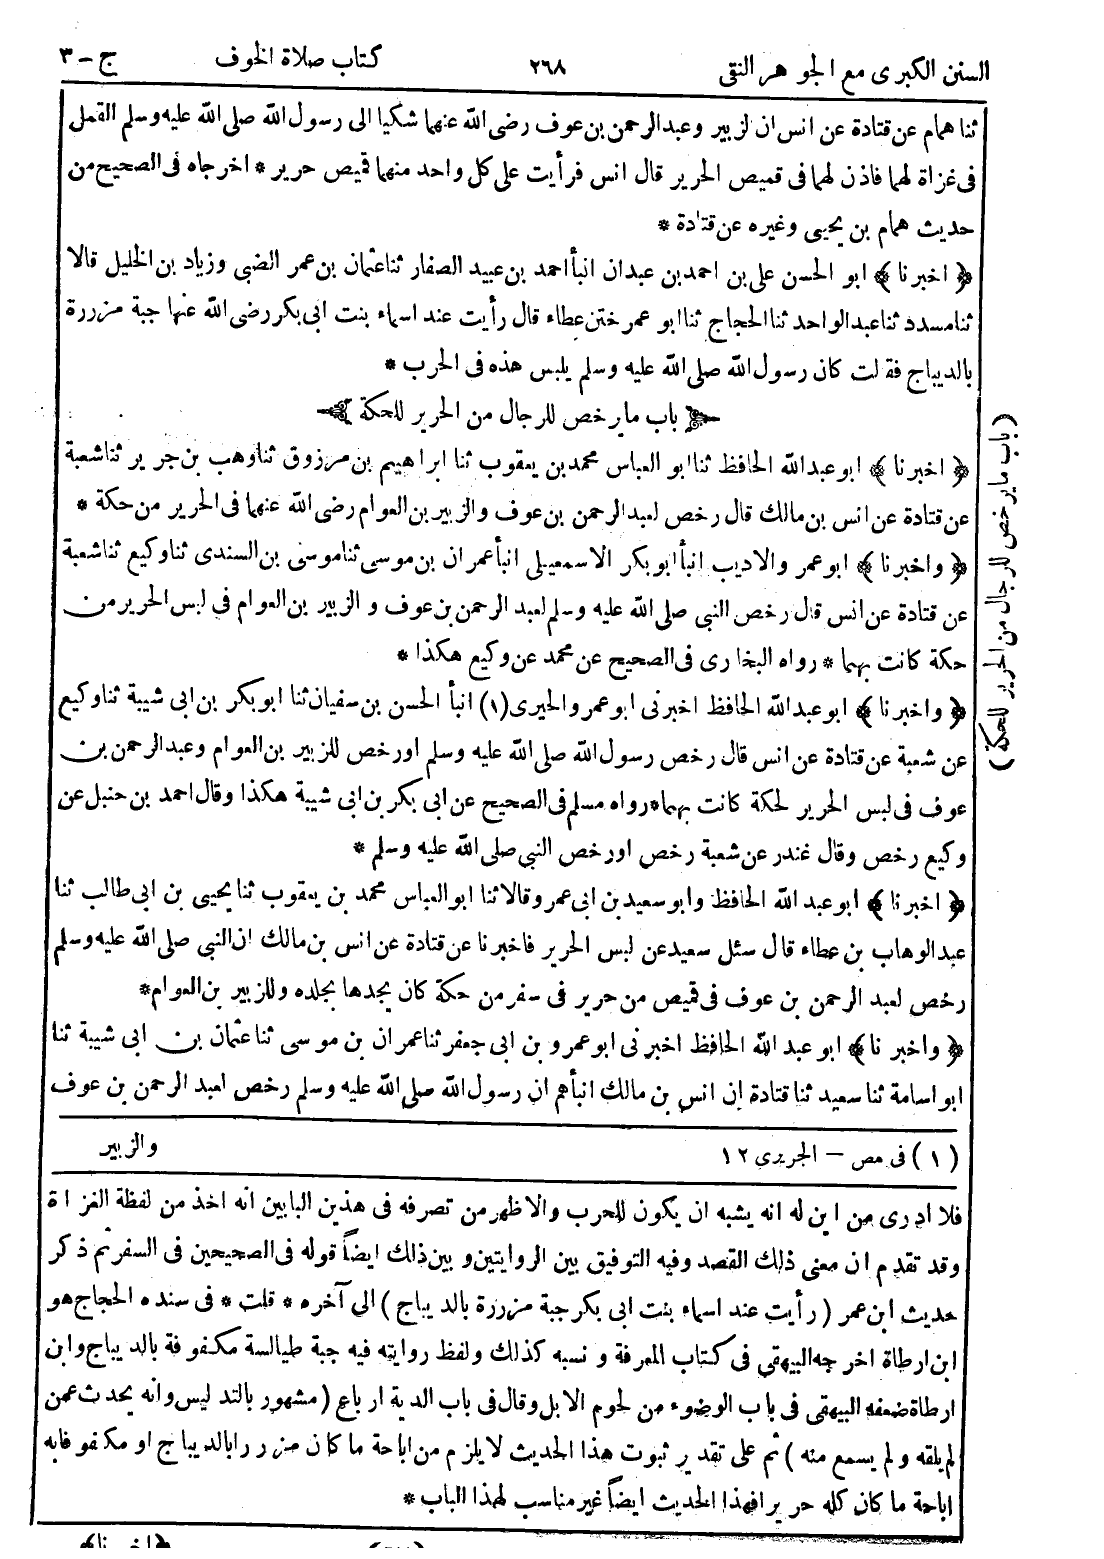 السنن الكبرى مع الجوهر النقى ٢٦٨ كتاب صلاة الخوف ج - ٣
ثنا همام عن قتادة عن انس ان الزبير وعبد الرحمن بن عوف رضى الله عنهما شكيا الى رسول الله صلى الله عليه وسلم القمل
فى غزاة لهما فاذن لهما فى قميص الحرير قال انس فرأيت على كل واحد منهما قميص حرير * اخرجاه فى الصحيح من
حديث همام بن يحيى وغيره عن قتادة *
﴿ اخبرنا ﴾ ابو الحسن على بن احمد بن عبدان انبأ احمد بن عبيد الصفار ثنا عثمان بن عمر الضبى وزياد بن الخليل قالا
ثنا مسدد ثنا عبد الواحد ثنا الحجاج ثنا ابو عمر ختن عطاء قال رأيت عند اسماء بنت ابى بكر رضى الله عنها جبة مزررة
بالديباج فقلت كان رسول الله صلى الله عليه وسلم يلبس هذه فى الحرب *
باب ما يرخص للرجال من الحرير للحكة
﴿ اخبرنا ﴾ ابو عبد الله الحافظ ثنا ابو العباس محمد بن يعقوب ثنا ابراهيم بن مرزوق ثنا وهب بن جرير ثنا شعبة
عن قتادة عن انس بن مالك قال رخص لعبد الرحمن بن عوف والزبير بن العوام رضى الله عنهما فى الحرير من حكة *
﴿ واخبرنا ﴾ ابو عمر والاديب انبأ ابو بكر الاسمعيلى انبأ عمران بن موسى ثنا موسى بن السندى ثنا وكيع ثنا شعبة
عن قتادة عن انس قال رخص النبى صلى الله عليه وسلم لعبد الرحمن بن عوف والزبير بن العوام فى لبس الحرير من
حكة كانت بهما * رواه البخارى فى الصحيح عن محمد عن وكيع هكذا *
﴿ واخبرنا ﴾ ابو عبد الله الحافظ اخبرنى ابو عمرو الحيرى (١) انبأ الحسن بن سفيان ثنا ابو بكر بن ابى شيبة ثنا وكيع
عن شعبة عن قتادة عن انس قال رخص رسول الله صلى الله عليه وسلم اورخص للزبير بن العوام وعبد الرحمن بن
عوف فى لبس الحرير لحكة كانت بهما * رواه مسلم فى الصحيح عن ابى بكر بن ابى شيبة هكذا وقال احمد بن حنبل عن
وكيع رخص وقال غندر عن شعبة رخص اورخص النبى صلى الله عليه وسلم *
﴿ اخبرنا ﴾ ابو عبد الله الحافظ وابو سعيد بن ابى عمرو قالا ثنا ابو العباس محمد بن يعقوب ثنا يحيى بن ابى طالب ثنا
عبد الوهاب بن عطاء قال سئل سعيد عن لبس الحرير فاخبرنا عن قتادة عن انس بن مالك ان النبى صلى الله عليه وسلم
رخص لعبد الرحمن بن عوف فى قميص من حرير فى سفر من حكة كان يجدها بجلده وللزبير بن العوام *
﴿ واخبرنا ﴾ ابو عبد الله الحافظ اخبرنى ابو عمرو بن ابى جعفر ثنا عمران بن موسى ثنا عثمان بن ابى شيبة ثنا
ابو اسامة ثنا سعيد ثنا قتادة ان انس بن مالك انبأهم ان رسول الله صلى الله عليه وسلم رخص لعبد الرحمن بن عوف
والزبير
(١) فى مص - الجريرى ١٢
فلا ادرى من اين له انه يشبه ان يكون للحرب والاظهر من تصرفه فى هذين البابين انه اخذ من لفظة الغزاة
وقد تقدم ان معنى ذلك القصد وفيه التوفيق بين الروايتين وبين ذلك ايضاً قوله فى الصحيحين فى السفر ثم ذكر
حديث ابن عمر (رأيت عند اسماء بنت ابى بكر جبة مزررة بالديباج) الى آخره * قلت * فى سنده الحجاج هو
ابن ارطاة اخرجه البيهقى فى كتاب المعرفة ونسبه كذلك ولفظ روايته فيه جبة طيالسة مكفوفة بالديباج وابن
ارطاة ضعفه البيهقى فى باب الوضوء من لحوم الابل وقال فى باب الدية ارباع (مشهور بالتدليس وانه يحدث عمن
لم يلقه ولم يسمع منه) ثم على تقدير ثبوت هذا الحديث لا يلزم من اباحة ما كان مزررا بالديباج او مكفوفا به
اباحة ما كان كله حريرا فهذا الحديث ايضاً غير مناسب لهذا الباب *
﴿اخبرنا﴾
(باب ما يرخص للرجال من الحرير للحكة)